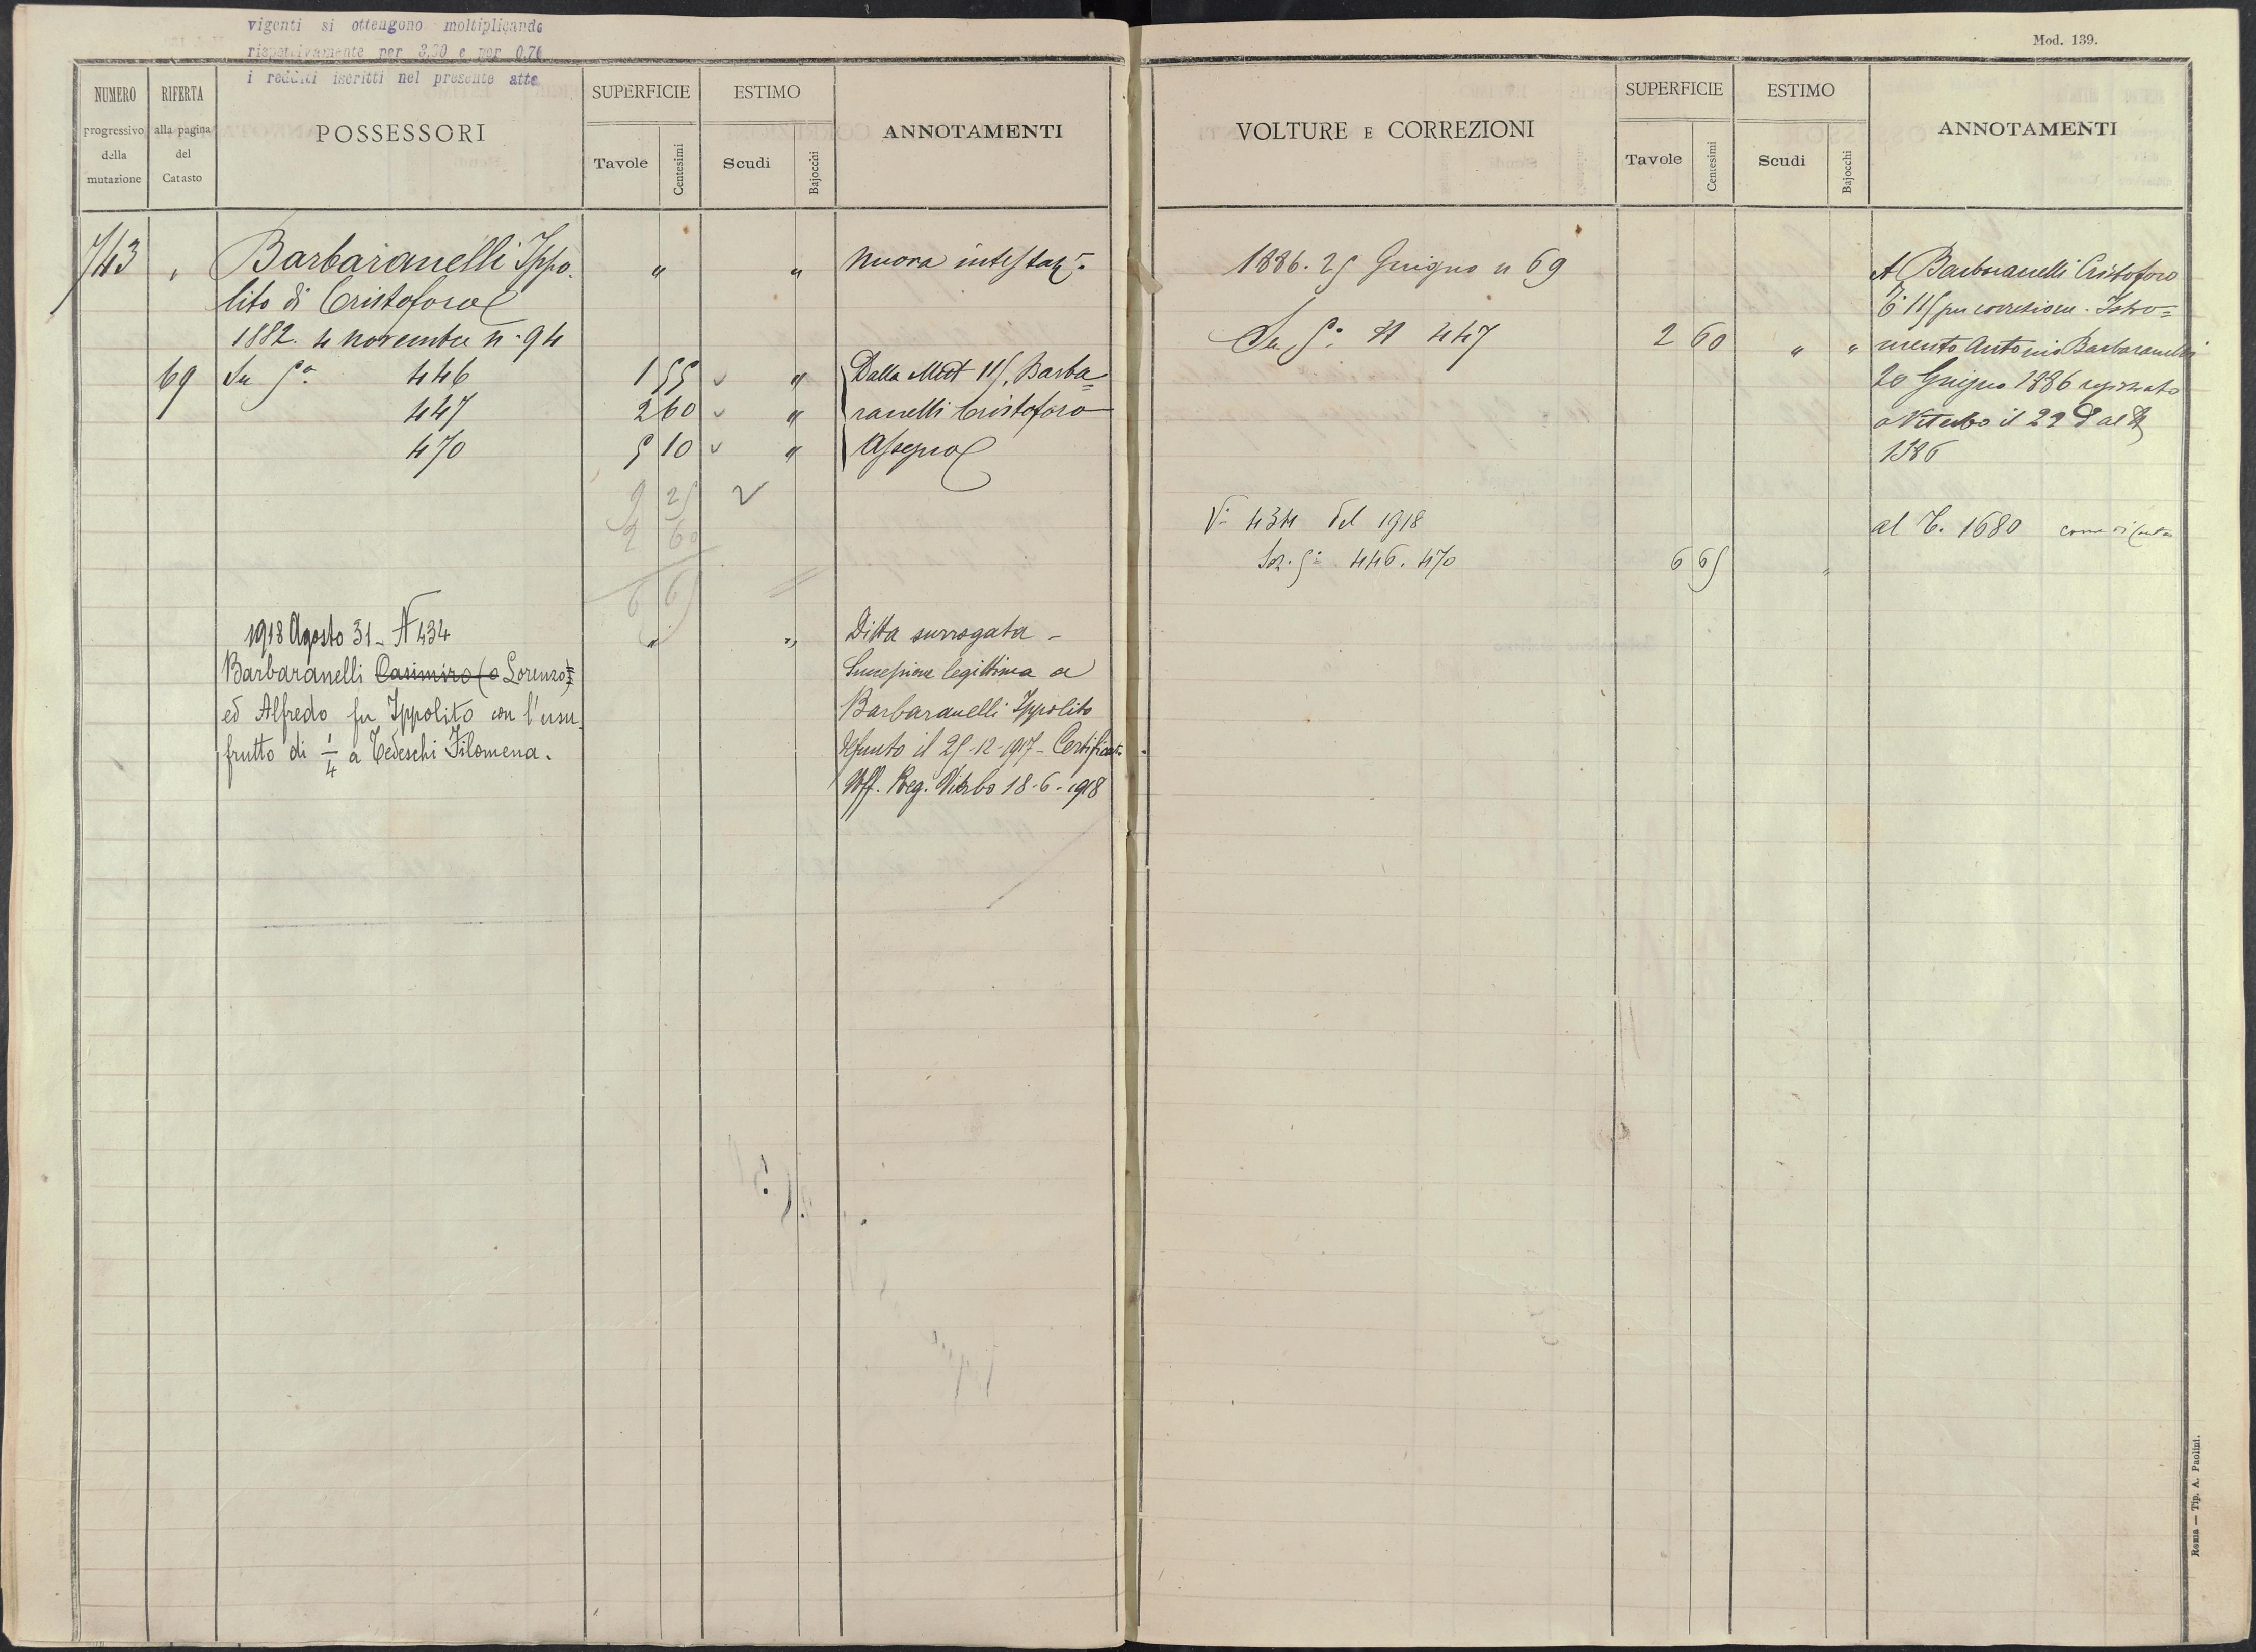 vigenti si ottengono moltiplicando
rispettivamente per 3,00 e per 0,76
i redditi iscritti nel presente atto
NUMERO progressivo della mutazione
RIFERTA alla pagina del Catasto
POSSESSORI
SUPERFICIE
Tavole Centesimi
ESTIMO
Scudi Bajocchi
ANNOTAMENTI
743 " Barbaranelli Ippo. " " Nuova intestaz.e
lito di Cristoforo
1882. 4 novembre n. 94
69 Se S.a 446 1 55 " Dalla Mut 115, Barba=
447 2 60 " ranelli Cristoforo
470 5 10 " Assegno
9 25
2 60
6 65
1918 Agosto 31 - N 434 " " Ditta surrogata -
Barbaranelli Casimiro (o Lorenzo) = Successione legittima a
ed Alfredo fu Ippolito con l'usu Barbaranelli Ippolito
frutto di 1/4 a Tedeschi Filomena. defunto il 25-12-1917 - Certificato
Uff. Reg. Viterbo 18-6-1918
Mod. 139.
VOLTURE E CORREZIONI
SUPERFICIE
Tavole Centesimi
ESTIMO
Scudi Bajocchi
ANNOTAMENTI
1886. 25 Giugno n 69 A Barbaranelli Cristoforo
115 per correzione. Istro=
Se S.a N 447 2 60 " " mento Antonio Barbaranelli
20 Giugno 1886 registrato
a Viterbo il 22 d al
1886
V.a 434 del 1918 al T. 1680 come di
Sez. S.a 446. 470 6 65 "
Roma — Tip. A. Paolini.